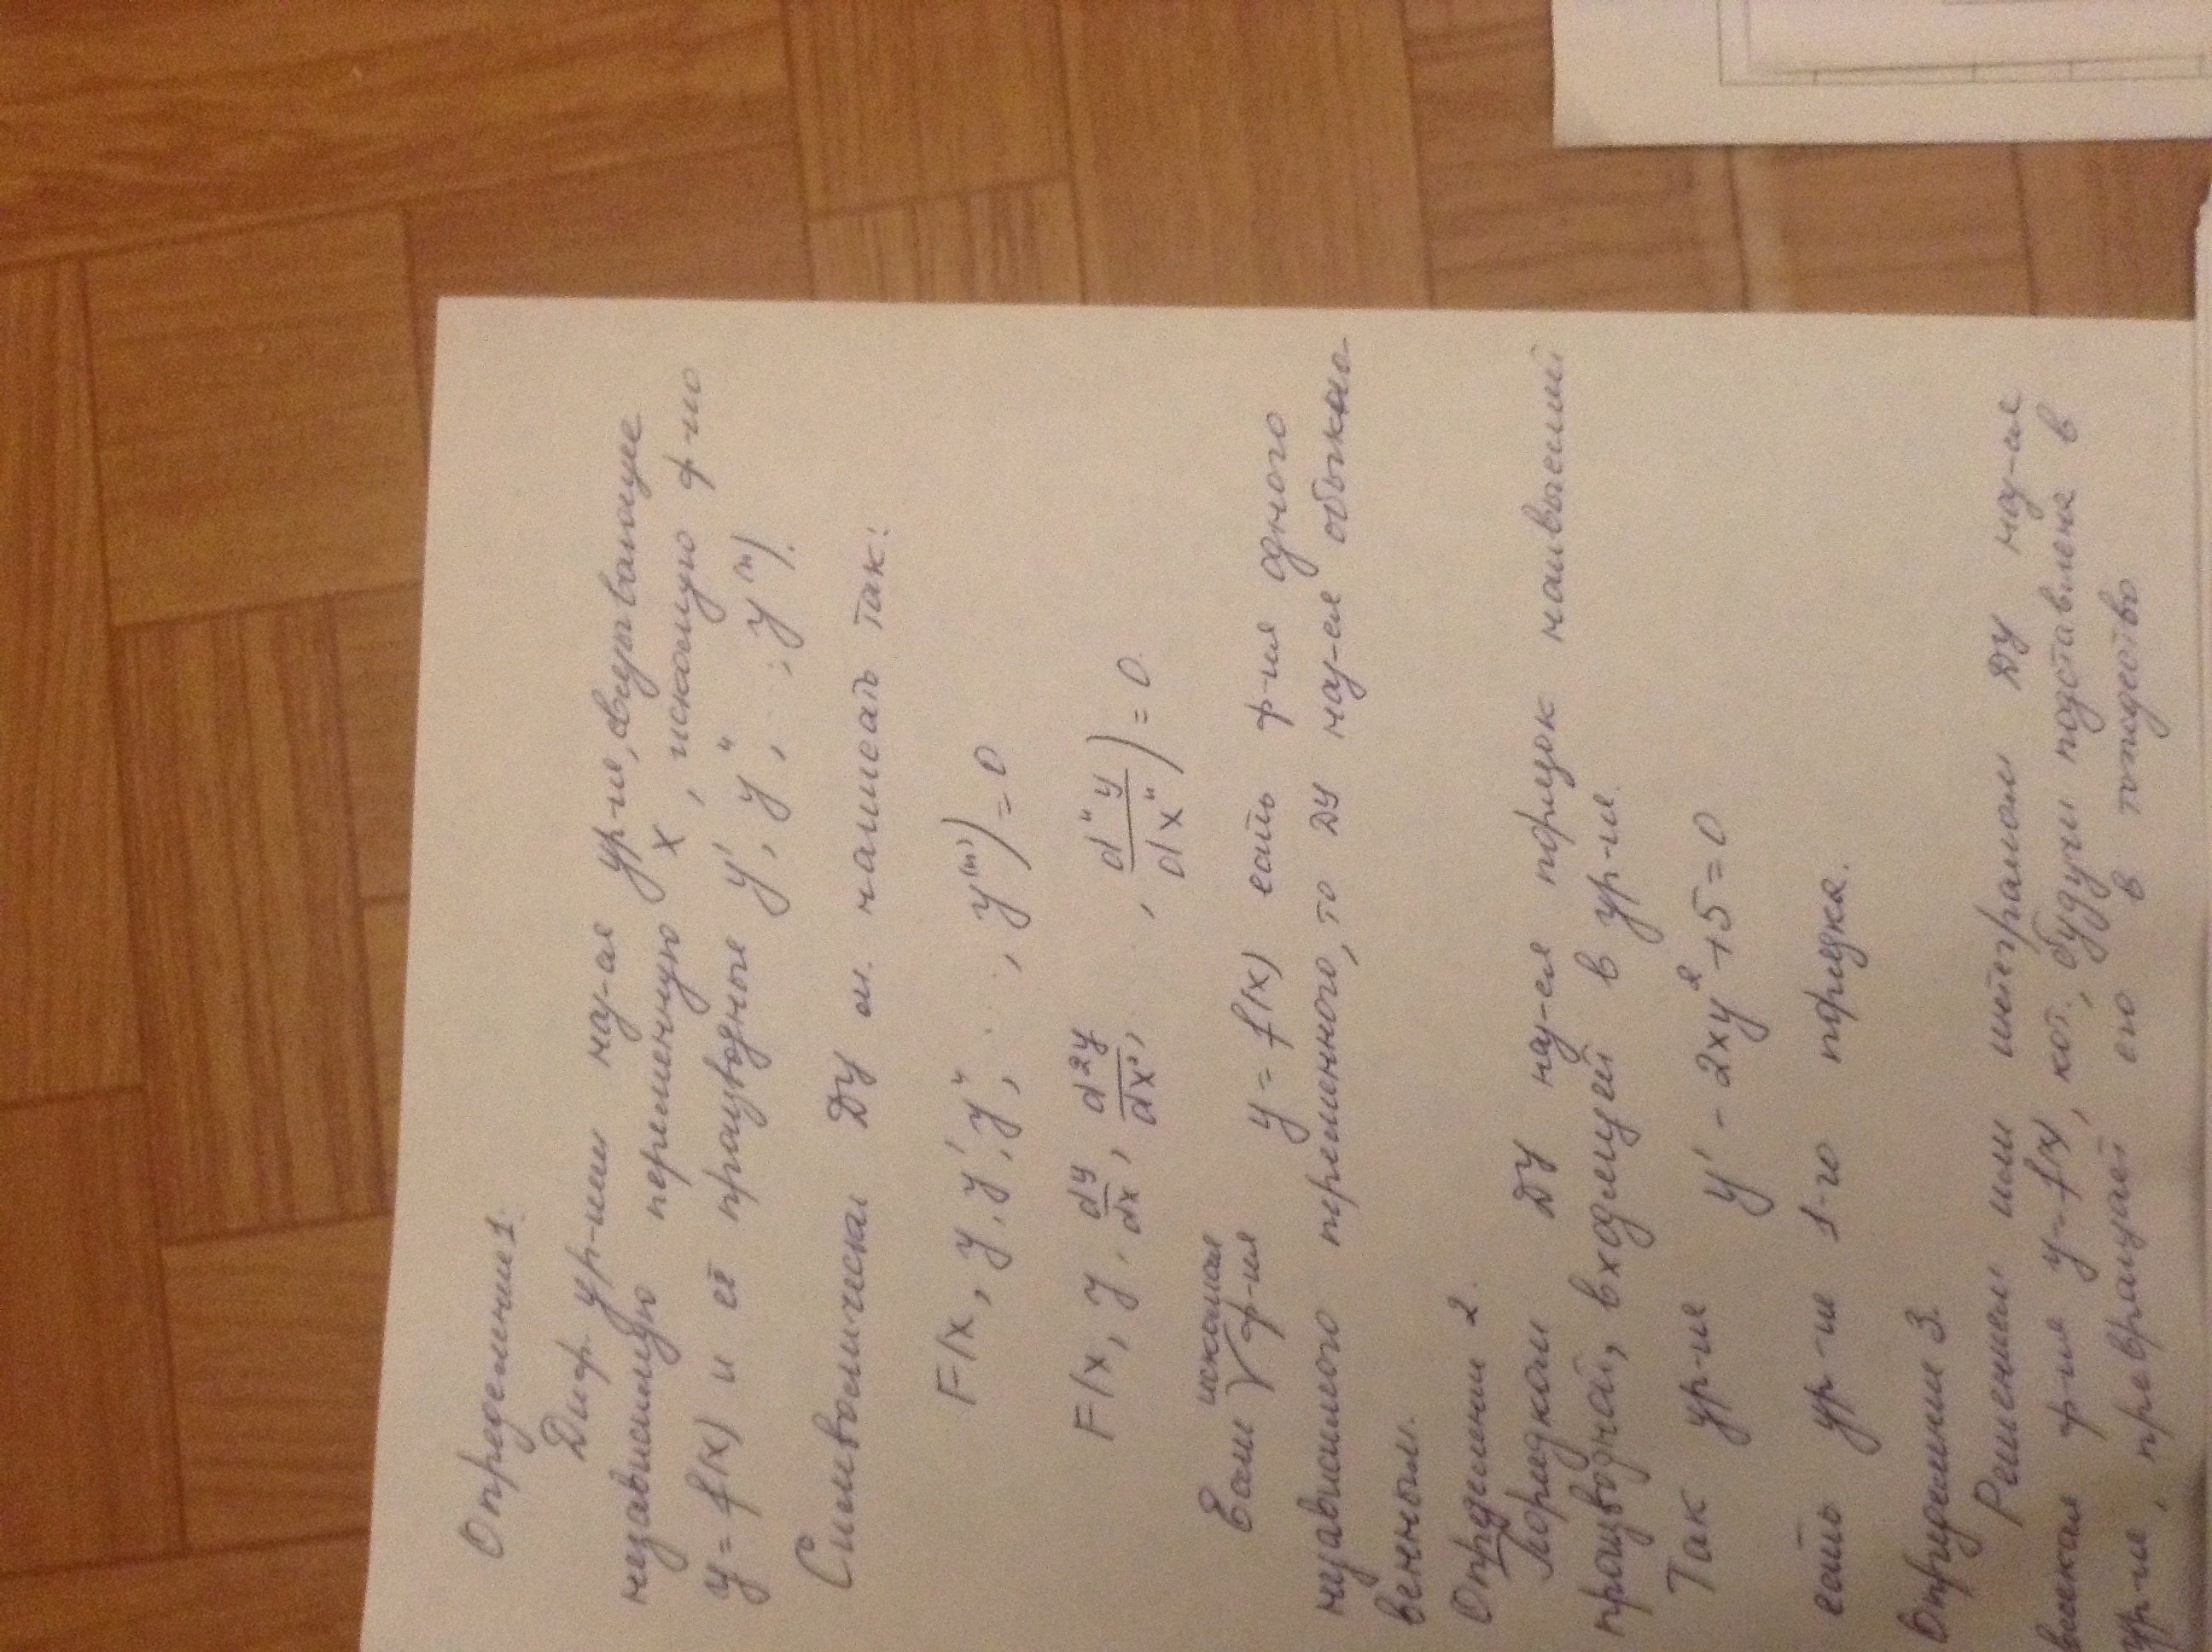 Определение 1.
Диф. ур-ием наз-ся ур-ие, связывающее
независимую переменную x, искомую ф-ию
y = f(x) и её производные y', y'', ..., y⁽ⁿ⁾.
Символически ДУ м. написать так:
F(x, y, y', y'', ..., y⁽ⁿ⁾) = 0
F(x, y, dy/dx, d²y/dx², ..., dⁿy/dxⁿ) = 0.
искомая
Если V ф-ия y = f(x) есть ф-ия одного
независимого переменного, то ДУ наз-ся обыкно-
венным.
Определение 2.
Порядком ДУ наз-ся порядок наивысшей
производной, входящей в ур-ие.
Так ур-ие y' - 2xy² + 5 = 0
есть ур-ие 1-го порядка.
Определение 3.
Решением или интегралом ДУ наз-ся
всякая ф-ия y = f(x), кот., будучи подставлена в
ур-ие, превращает его в тождество